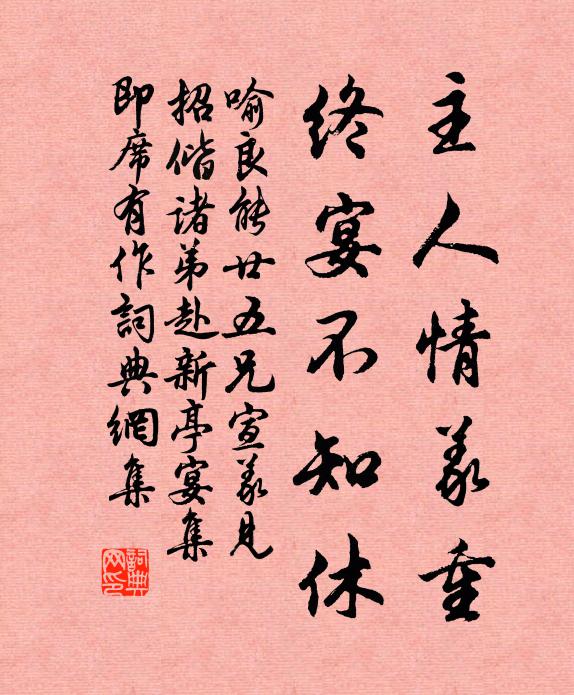 主人情義重
終宴不知休
喻良能廿五兄宣義見
招偕諸弟赴新亭宴集
即席有作詞典網集
詞典
网印